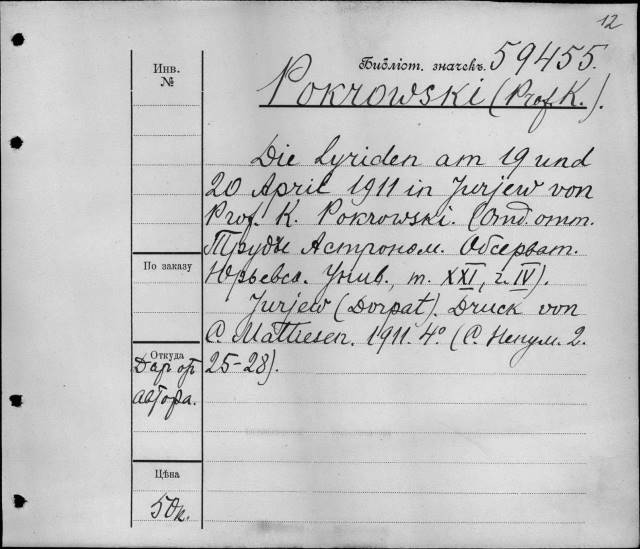 12
Библіот. значекъ. 59455.
Инв.
№
Pokrowski (Prof. K.).
Die Lyriden am 19 und
20 April 1911 in Jurjew von
Prof. K. Pokrowski. (Отд. отт.
Труды Астроном. Обсерват.
Юрьевск. Унив., т. XXI, ч. IV).
По заказу
Jurjew (Dorpat). Druck von
C. Mattiesen. 1911. 4º (С. Ненум. 2.
Откуда
25-28).
Дар от
автора.
Цѣна
50к.